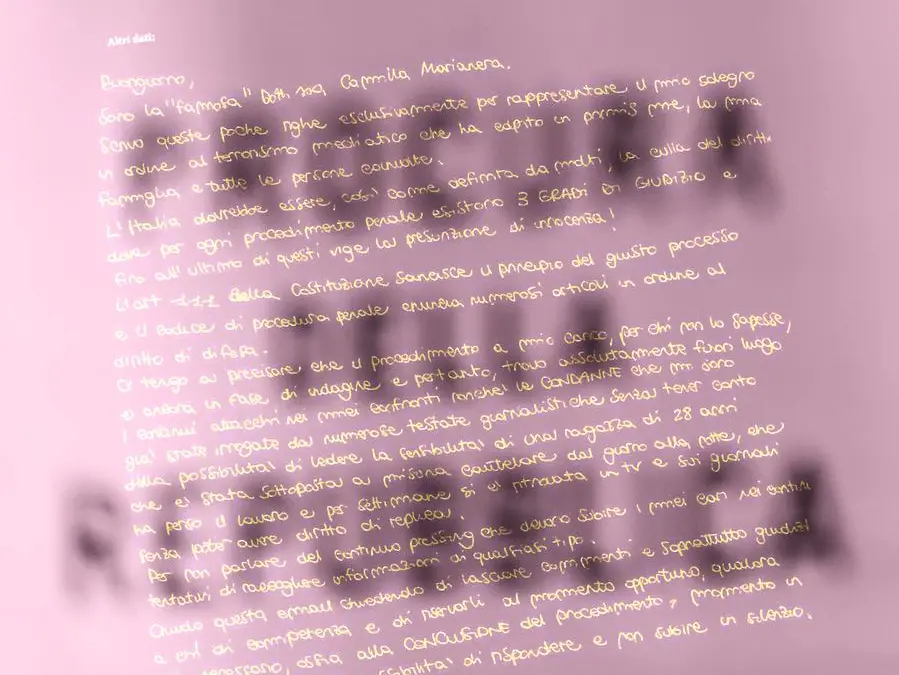 Altri dati:
Buongiorno,
Sono la "famosa" Dott.ssa Camilla Marianera.
Scrivo queste poche righe esclusivamente per rappresentare il mio sdegno
in ordine al terrorismo mediatico che ha colpito in primis me, la mia
famiglia e tutte le persone coinvolte.
L'Italia dovrebbe essere, così come definita da molti, la culla del diritto
dove per ogni procedimento penale esistono 3 GRADI DI GIUDIZIO e
fino all'ultimo di questi vige la presunzione di innocenza!
L'art 111 della Costituzione sancisce il principio del giusto processo
e il codice di procedura penale enuncia numerosi articoli in ordine al
diritto di difesa.
Ci tengo a precisare che il procedimento a mio carico, per chi non lo sapesse,
è ancora in fase di indagine e pertanto, trovo assolutamente fuori luogo
i continui attacchi nei miei confronti nonché le CONDANNE che mi sono
già state irrogate da numerose testate giornalistiche senza tener conto
della possibilità di ledere la sensibilità di una ragazza di 28 anni
che è stata sottoposta a misura cautelare dal giorno alla notte, che
ha perso il lavoro e per settimane si è ritrovata in tv e sui giornali
senza poter avere diritto di replica.
Per non parlare del continuo pressing che devono subire i miei cari nei continui
tentativi di raccogliere informazioni di qualsiasi tipo.
Chiudo questa email chiedendo di lasciare commenti e soprattutto giudizi
a chi di competenza e di riservarli al momento opportuno, qualora
necessario, ossia alla CONCLUSIONE del procedimento, momento in
possibilità di rispondere e non subire in silenzio.